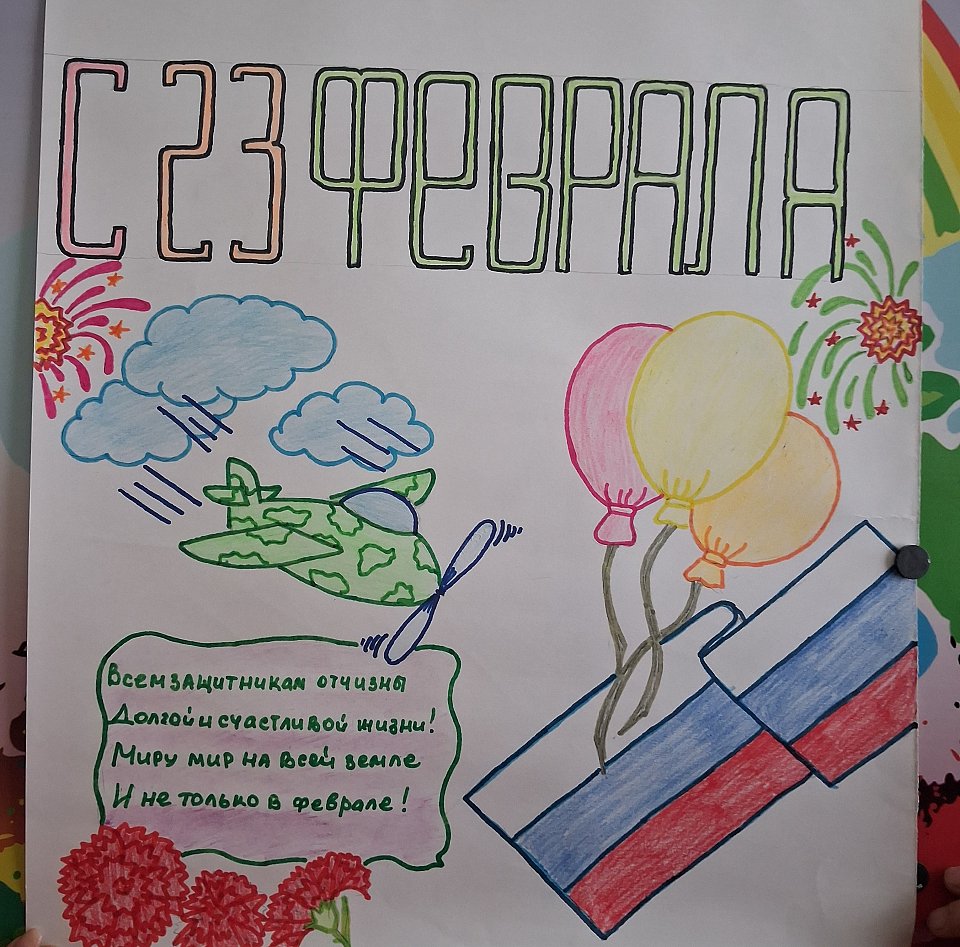 С 23 ФЕВРАЛЯ
Всем защитникам отчизны
Долгой и счастливой жизни!
Миру мир на всей земле
И не только в феврале!